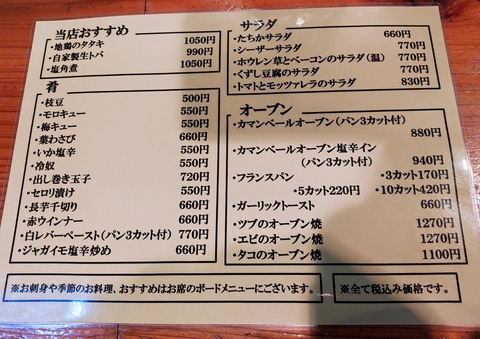 当店おすすめ
・地鶏のタタキ 1050円
・自家製生トバ 990円
・塩角煮 1050円
肴
・枝豆 500円
・モロキュー 550円
・梅キュー 550円
・葉わさび 660円
・いか塩辛 550円
・冷奴 550円
・出し巻き玉子 720円
・セロリ漬け 550円
・長芋千切り 660円
・赤ウインナー 660円
・白レバーペースト(パン3カット付) 770円
・ジャガイモ塩辛炒め 660円
サラダ
・たちかサラダ 660円
・シーザーサラダ 770円
・ホウレン草とベーコンのサラダ(温) 770円
・くずし豆腐のサラダ 770円
・トマトとモッツァレラのサラダ 830円
オーブン
・カマンベールオーブン(パン3カット付)
880円
・カマンベールオーブン塩辛イン
(パン3カット付) 940円
・フランスパン ・3カット170円
・5カット220円 ・10カット420円
・ガーリックトースト 660円
・ツブのオーブン焼 1270円
・エビのオーブン焼 1270円
・タコのオーブン焼 1100円
※お刺身や季節のお料理、おすすめはお席のボードメニューにございます。
※全て税込み価格です。